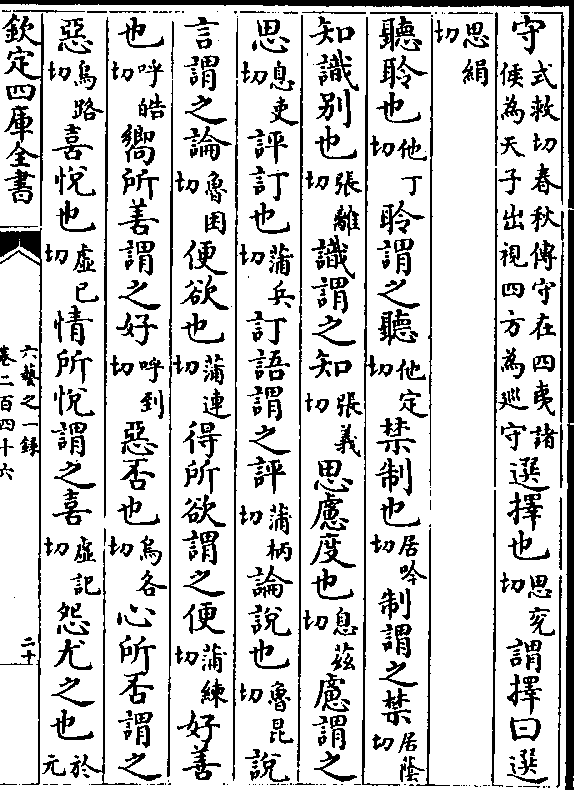 守式救切春秋傳守在四夷諸侯為天子出視四方為巡守選擇也思兖切謂擇曰選
思絹切
聽聆也他丁切聆謂之聽他定切禁制也居吟切制謂之禁居蔭切
知識别也張離切識謂之知張義切思慮度也息兹切慮謂之
思息吏切評訂也蒲兵切訂語謂之評蒲柄切論說也魯昆切說
言謂之論魯困切便欲也蒲連切得所欲謂之便蒲練切好善
也呼皓切嚮所善謂之好呼到切惡否也烏各切心所否謂之
惡烏路切喜悅也虛已切情所悅謂之喜虛記切怨尤之也於元
欽定四庫全書
六藝之一錄
卷二百四十六
二十